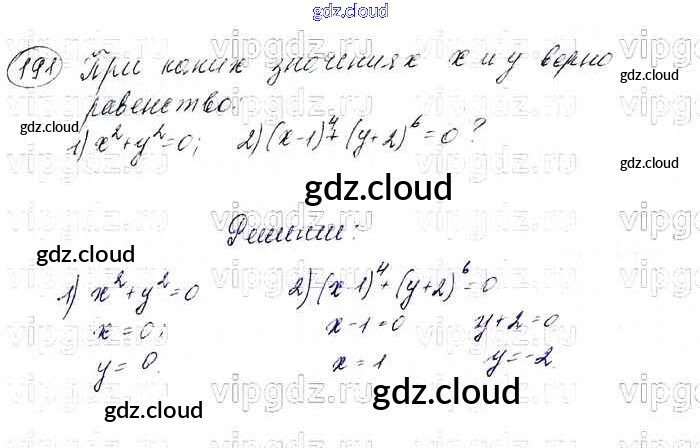 gdz.cloud
191 При каких значениях x и y верно
равенство:
1) x²+y²=0; 2) (x-1)⁴+(y+2)⁶=0?
gdz.cloud
gdz.cloud
gdz.cloud
Решение:
gdz.cloud
1) x²+y²=0 2) (x-1)⁴+(y+2)⁶=0
x=0; x-1=0 y+2=0
y=0. x=1 y=-2.
gdz.cloud
gdz.cloud
gdz.cloud